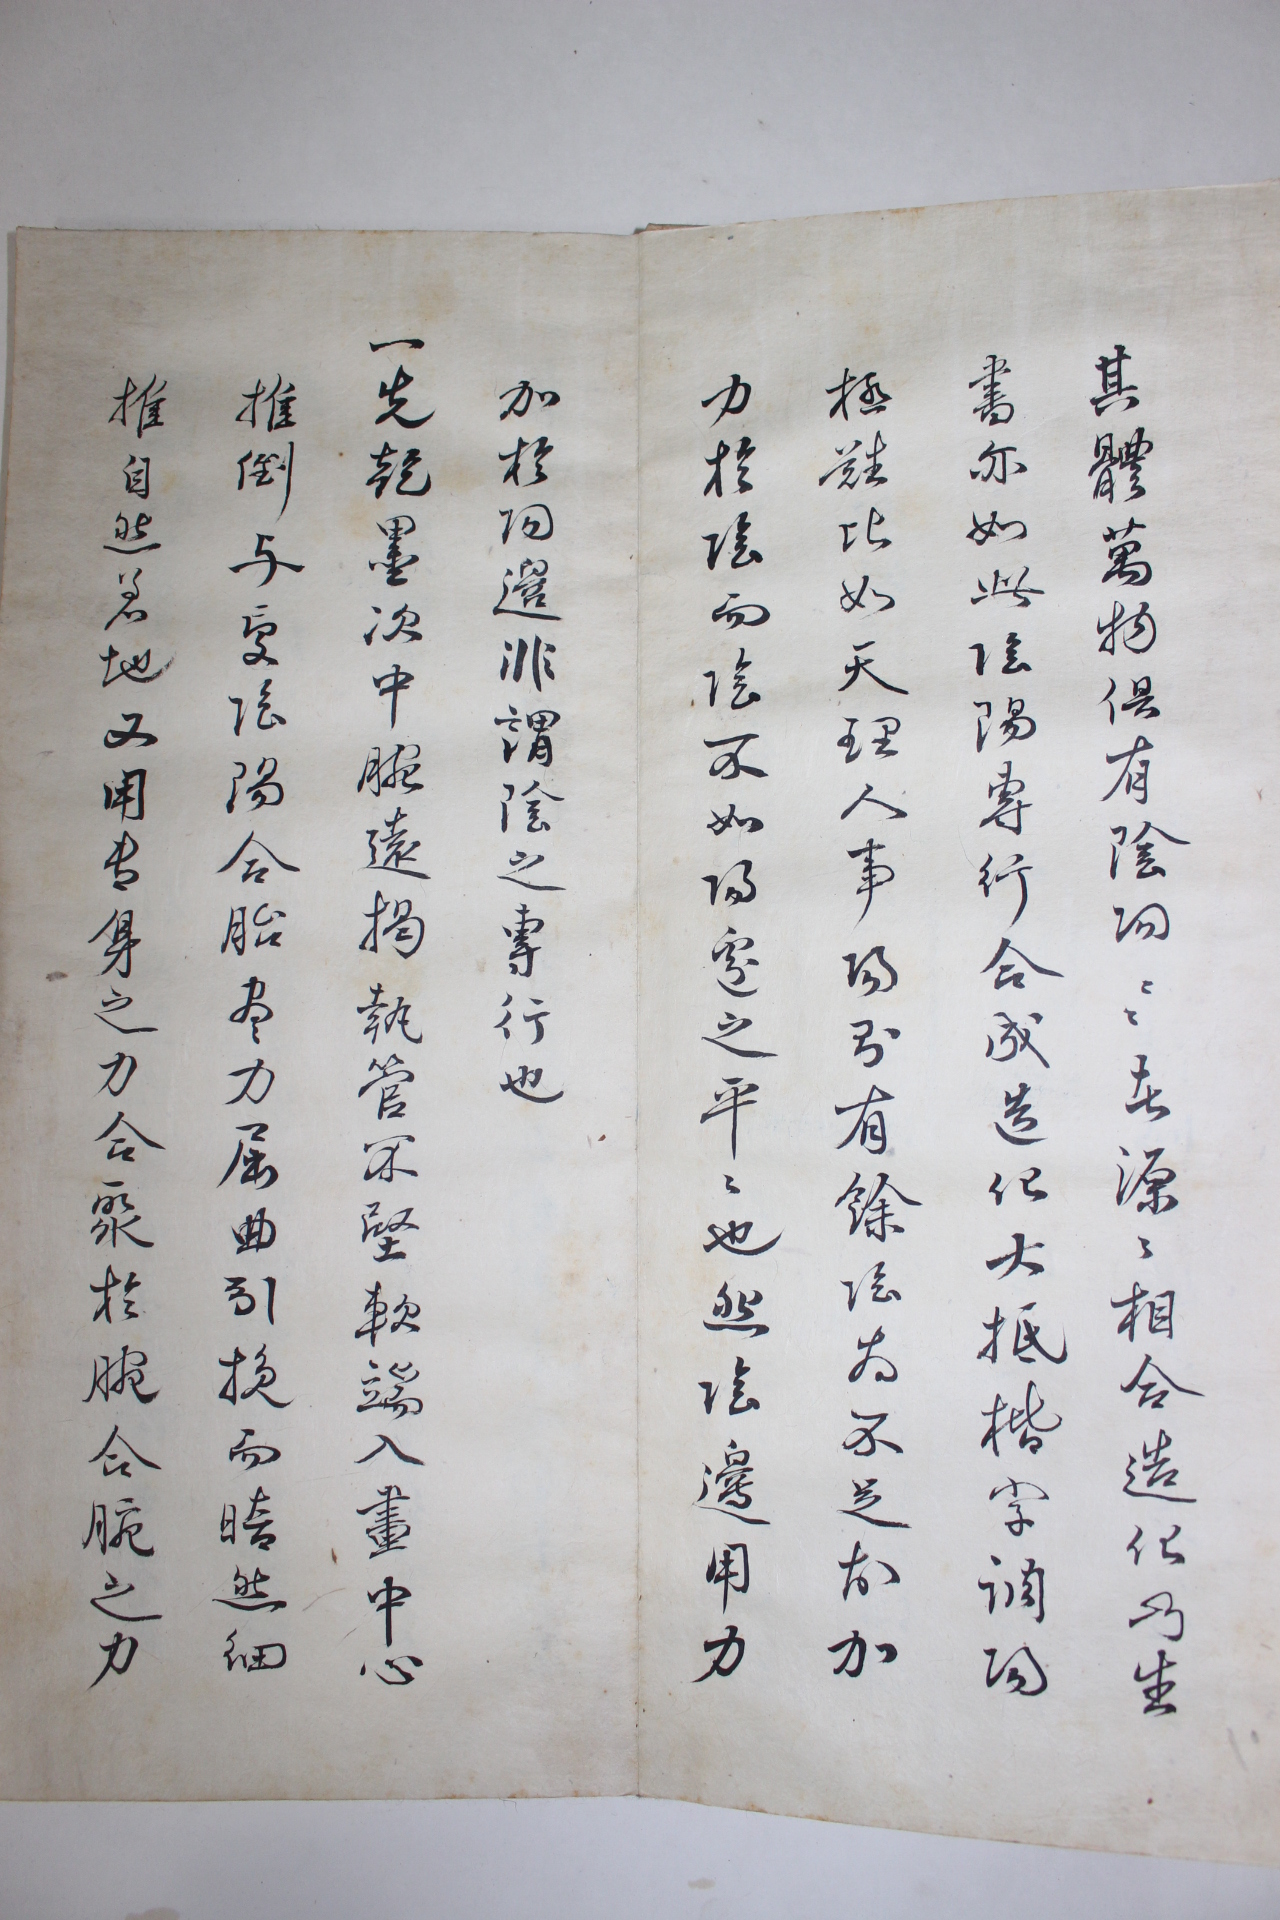 其體萬物俱有陰阳〻〻在源〻相合造化乃生
書亦如此陰陽專行合成造化大抵楷字調阳
極難比如天理人事阳則有餘陰為不足故加
力於陰而陰不如阳邊之平〻也然陰邊用力
加於阳邊非謂陰之專行也
一先乾墨次中腕遠揭執管不堅軟端入畫中心
推倒与受陰陽合胎尽力屈曲引換而暗然細
推自然着地又用专身之力合聚於腕合腕之力